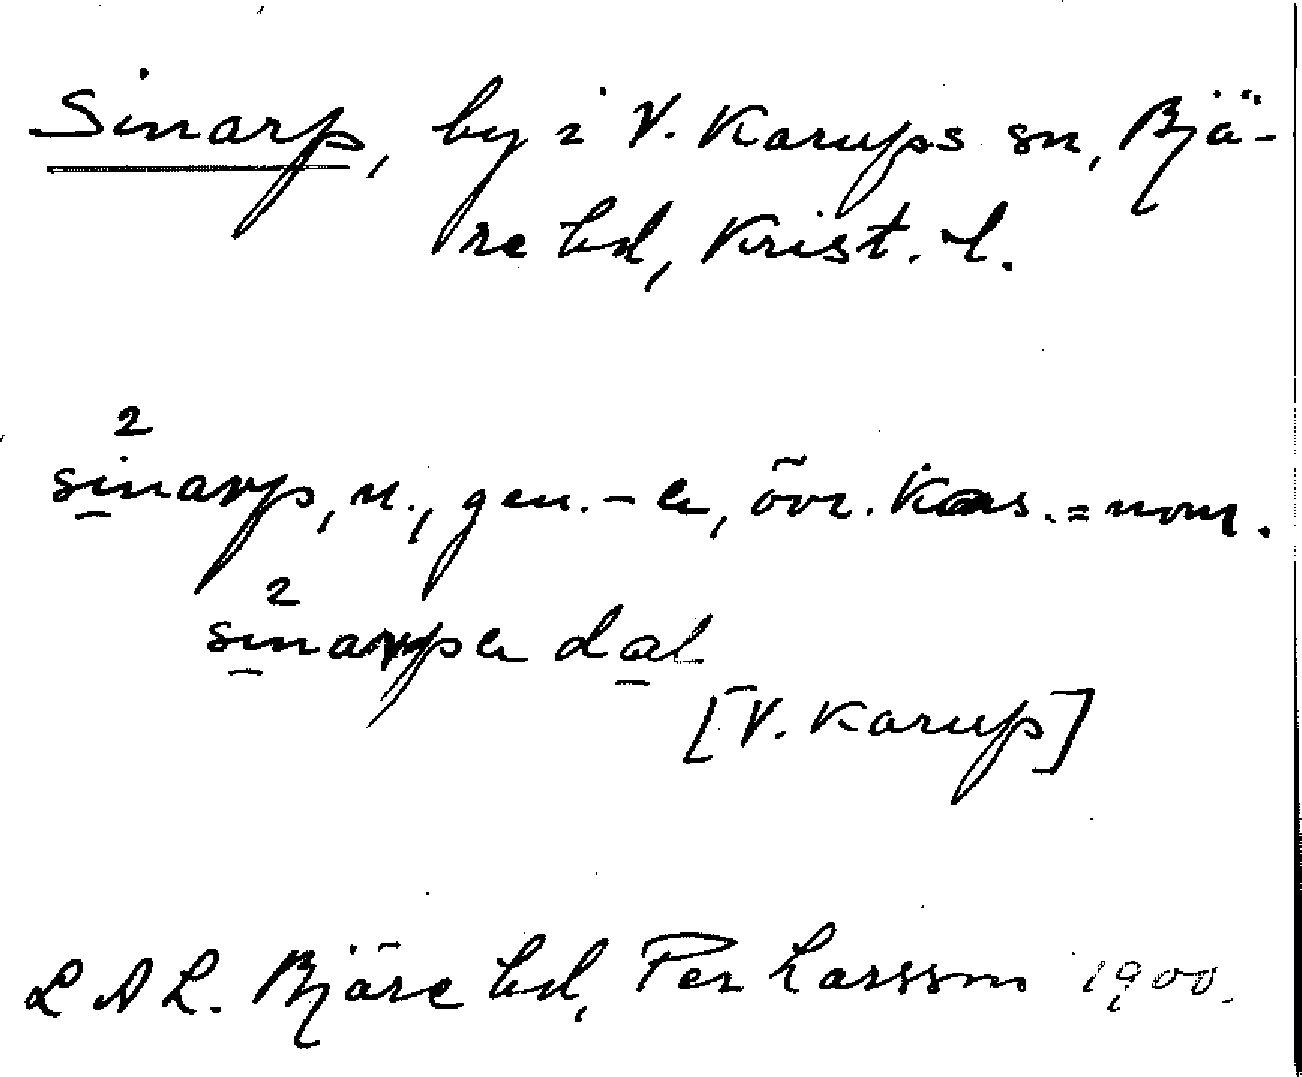 Sinarp, by i V. Karups sn, Bjä-
re hd, Krist. l.
2
sinarp, n., gen. - a, övr. kas. = nom.
2
sinarpa dal
[V. Karup]
L A L. Bjäre hd, Per Larsson 1900.